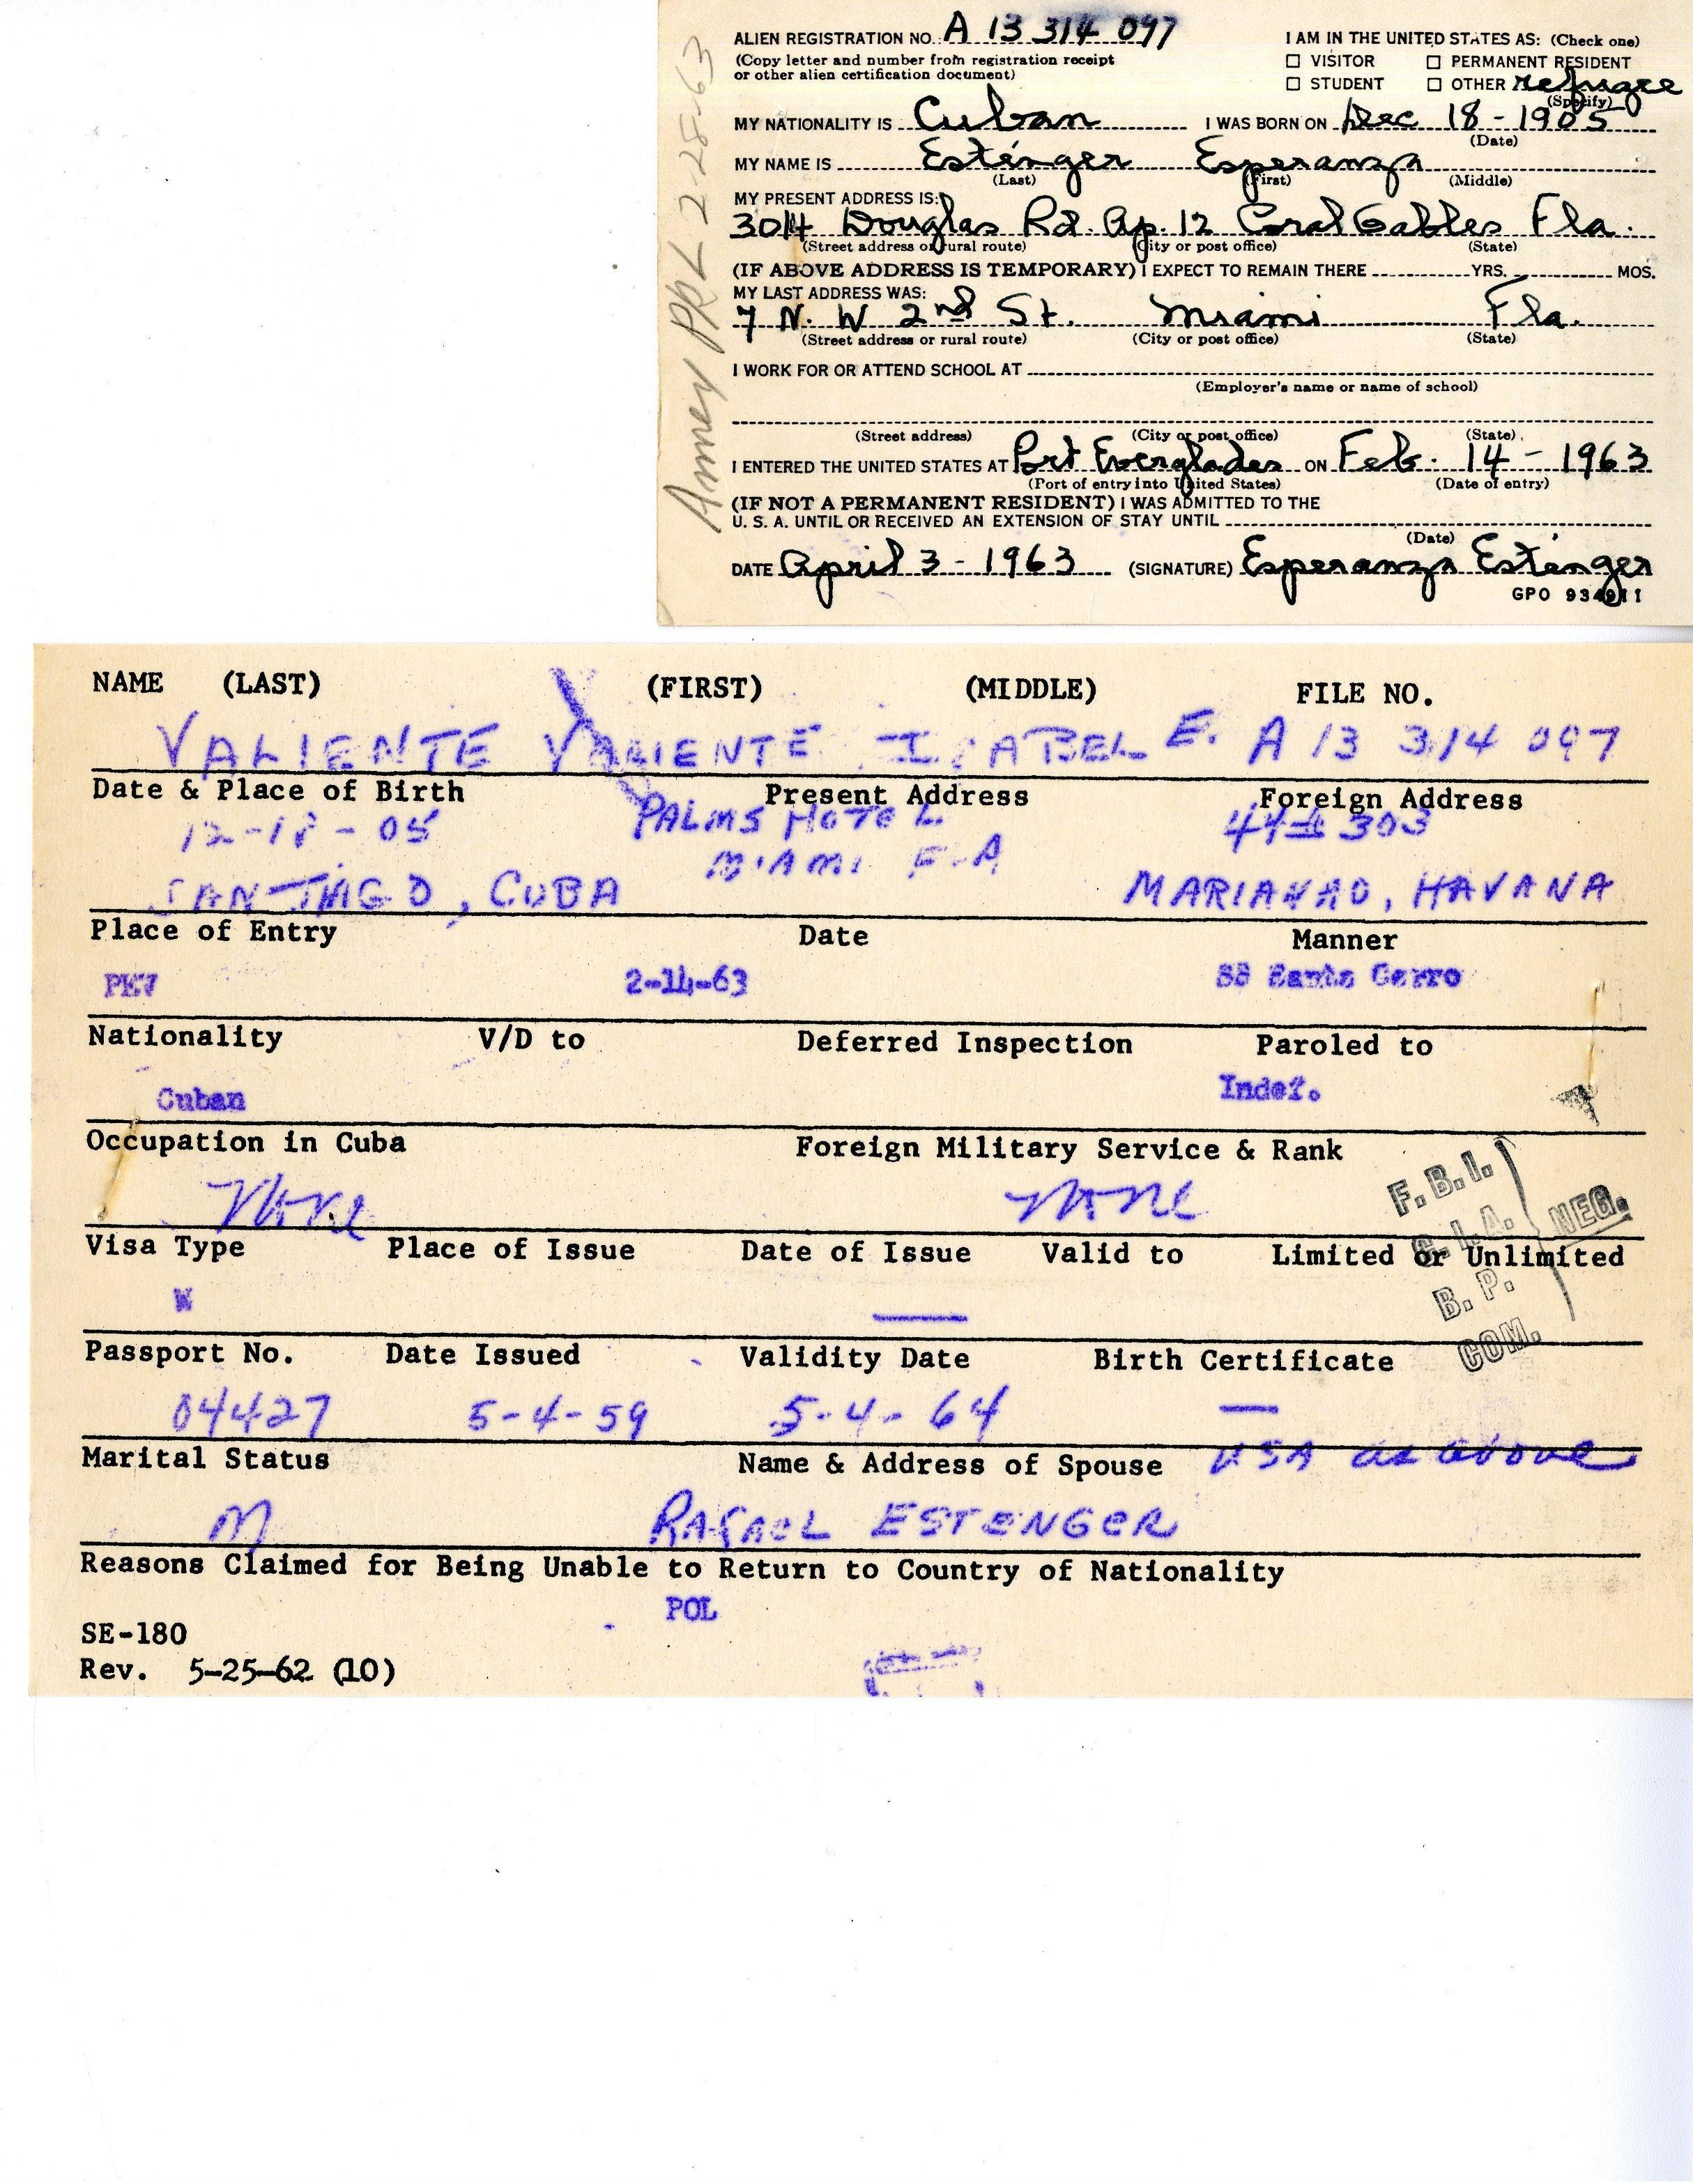 ALIEN REGISTRATION NO. A 13 314 097
(Copy letter and number from registration receipt
or other alien certification document)
I AM IN THE UNITED STATES AS: (Check one)
☐ VISITOR ☐ PERMANENT RESIDENT
☐ STUDENT ☐ OTHER refugee
(Specify)
MY NATIONALITY IS Cuban I WAS BORN ON Dec 18 - 1905
(Date)
MY NAME IS Esténger Esperanza
(Last) (First) (Middle)
MY PRESENT ADDRESS IS:
3014 Douglas Rd. Ap. 12 Coral Gables Fla.
(Street address or rural route) (City or post office) (State)
(IF ABOVE ADDRESS IS TEMPORARY) I EXPECT TO REMAIN THERE YRS. MOS.
MY LAST ADDRESS WAS:
7 N. W 2nd St. Miami Fla.
(Street address or rural route) (City or post office) (State)
I WORK FOR OR ATTEND SCHOOL AT
(Employer's name or name of school)
(Street address) (City or post office) (State)
I ENTERED THE UNITED STATES AT Port Everglades ON Feb. 14 - 1963
(Port of entry into United States) (Date of entry)
(IF NOT A PERMANENT RESIDENT) I WAS ADMITTED TO THE
U. S. A. UNTIL OR RECEIVED AN EXTENSION OF STAY UNTIL
(Date)
DATE April 3 - 1963 (SIGNATURE) Esperanza Esténger
GPO 934911
2-28-63
NAME (LAST) (FIRST) (MIDDLE) FILE NO.
VALIENTE VALIENTE ISABEL E. A 13 314 097
Date & Place of Birth Present Address Foreign Address
12-18-05 PALMS HOTEL 44 # 303
MIAMI FLA
SANTIAGO, CUBA MARIANAO, HAVANA
Place of Entry Date Manner
PEV 2-14-63 SS Santo Cerro
Nationality V/D to Deferred Inspection Paroled to
Cuban Indef.
Occupation in Cuba Foreign Military Service & Rank
None None
F.B.I.
C.I.A. NEG.
B.P.
COM.
Visa Type Place of Issue Date of Issue Valid to Limited or Unlimited
W
Passport No. Date Issued Validity Date Birth Certificate
04427 5-4-59 5-4-64 —
Marital Status Name & Address of Spouse USA as above
M RAFAEL ESTENGER
Reasons Claimed for Being Unable to Return to Country of Nationality
POL
SE-180
Rev. 5-25-62 (10)